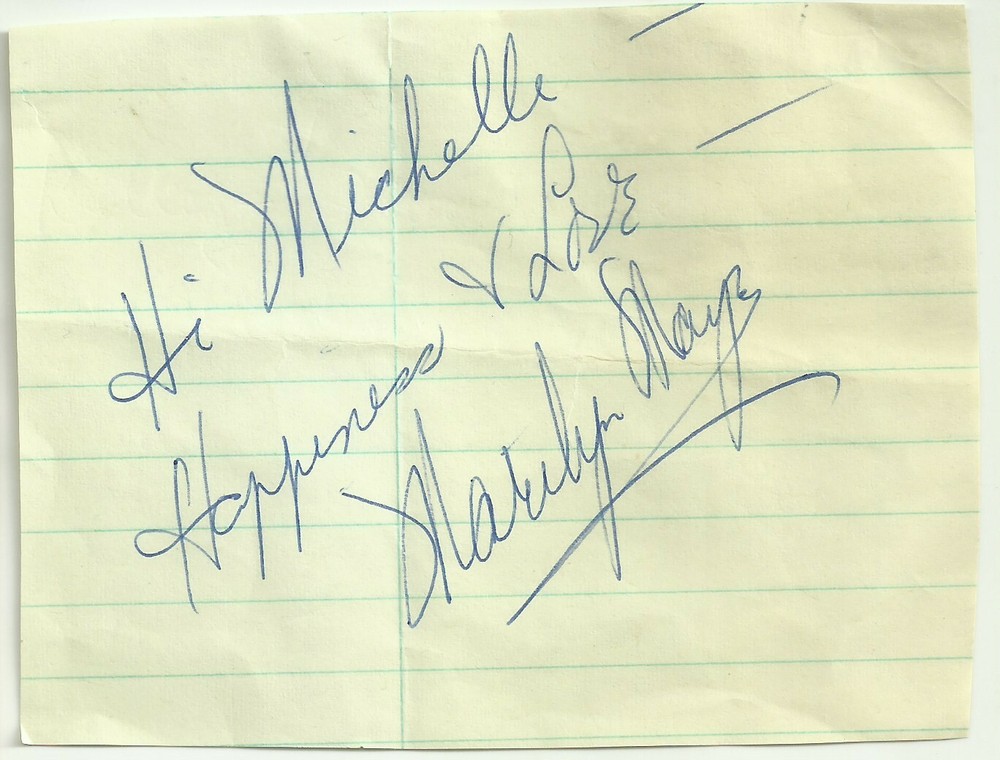 Hi Michelle —
Happiness & Love —
Marilyn Maye